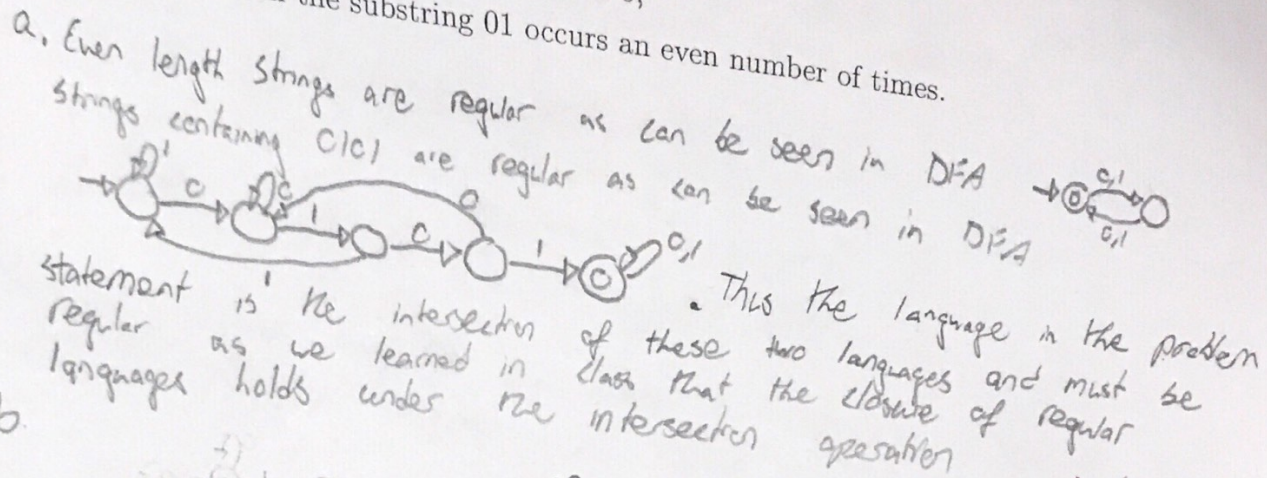 the substring 01 occurs an even number of times.
a. Even length strings are regular as can be seen in DFA
0,1
0,1
strings containing 0101 are regular as can be seen in DFA
1 0 0 1 0 0 1 0,1
1
. Thus the language in the problem
statement is the intersection of these two languages and must be
regular as we learned in class that the closure of regular
languages holds under the intersection operation
b.